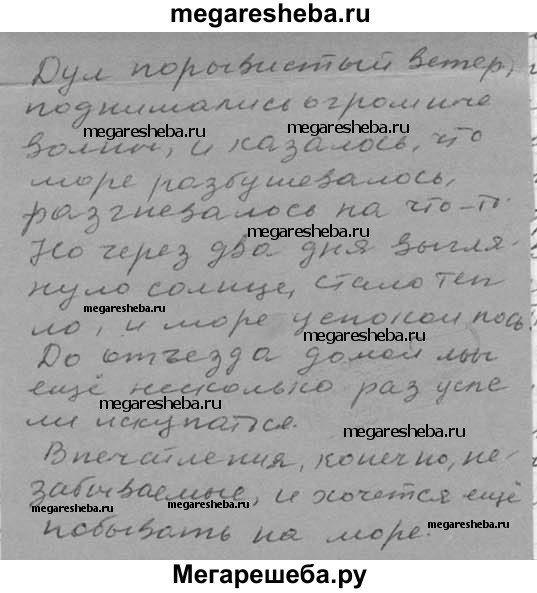 megaresheba.ru
Дул порывистый ветер,
megaresheba.ru
поднимались огромные
megaresheba.ru megaresheba.ru
волны, и казалось, что
море разбушевалось,
разгневалось на что-то.
megaresheba.ru
Но через два дня выгля-
нуло солнце, стало теп
megaresheba.ru
ло, и море успокоилось.
megaresheba.ru
До отъезда домой мы
ещё несколько раз успе
megaresheba.ru
ли искупаться.
megaresheba.ru
Впечатления, конечно, не-
забываемые, и хочется ещё
megaresheba.ru
побывать на море.
megaresheba.ru
megaresheba.ru
Мегарешеба.ру